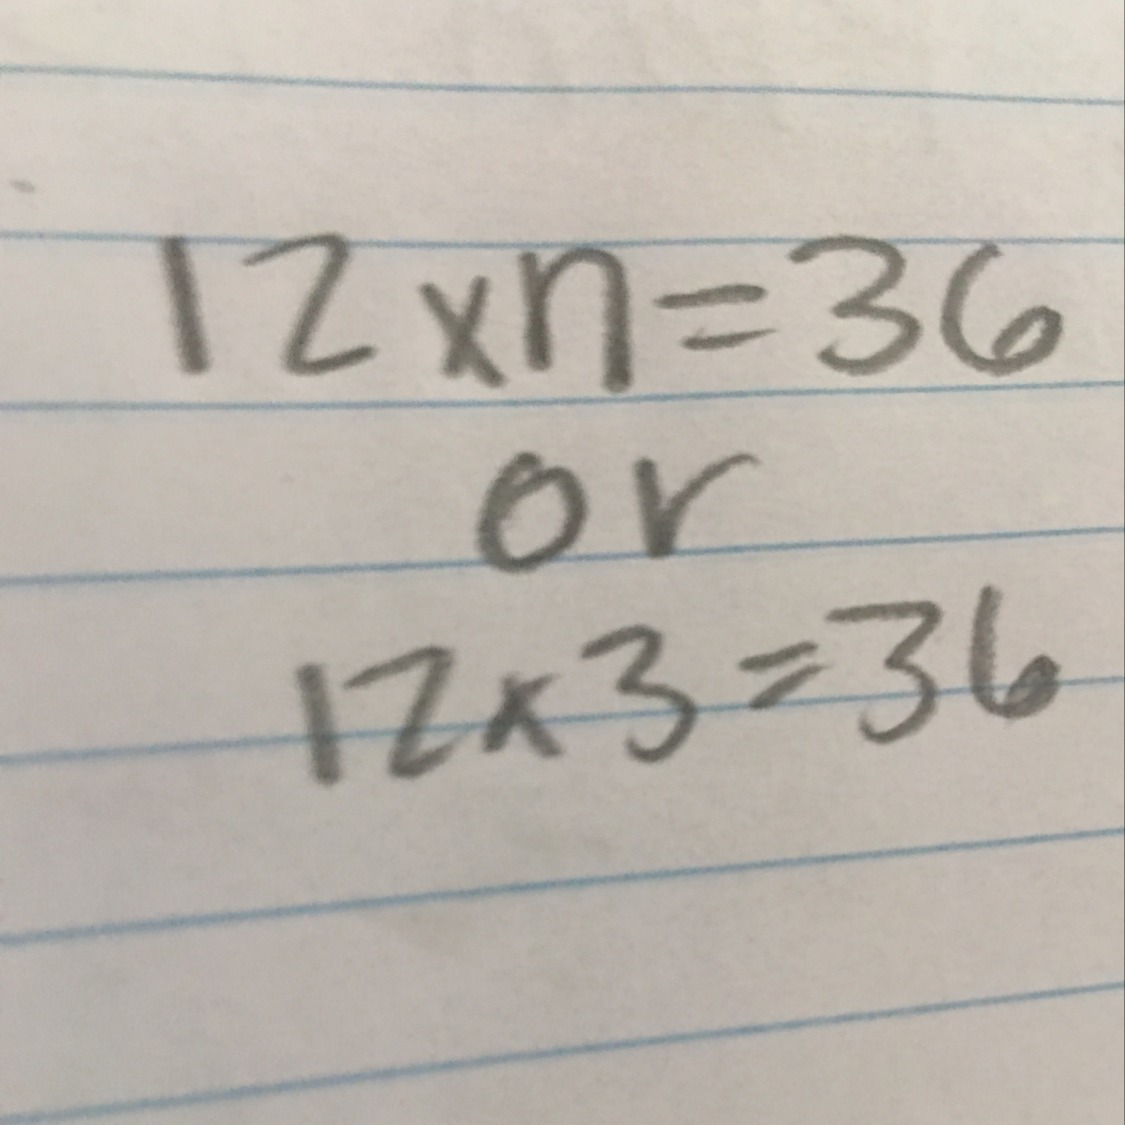 12xn=36
or
12x3=36